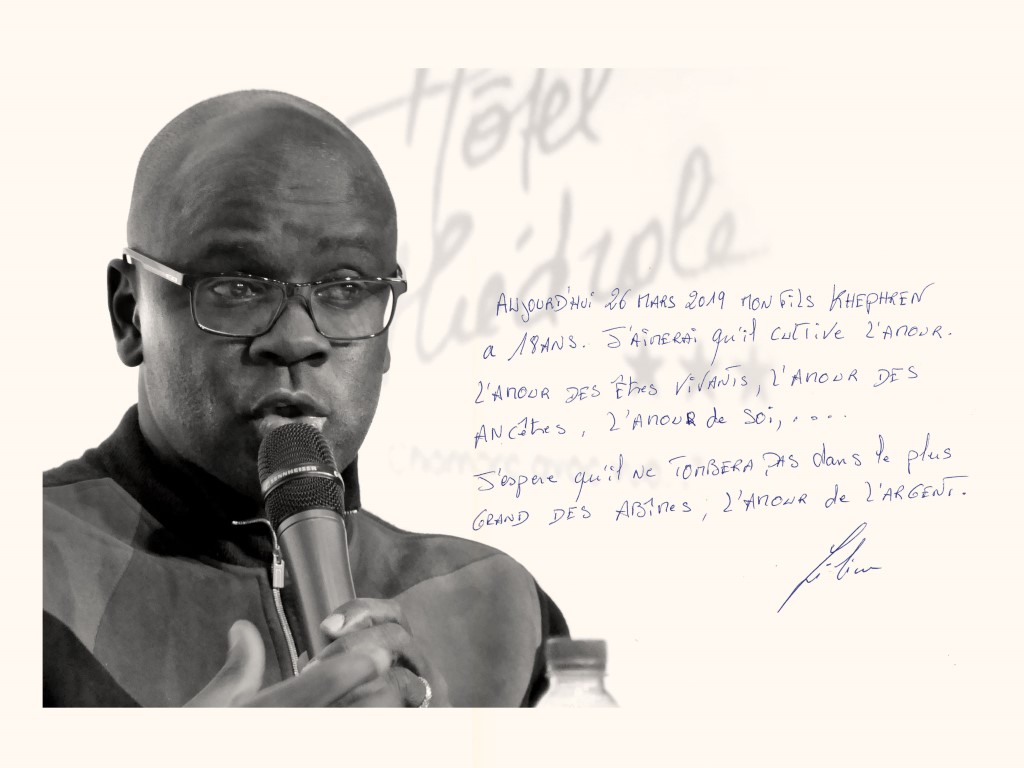 Hôtel
SENNHEISER
AUJOURD'HUI 26 MARS 2019 MON FILS KHEPHREN
a 18ANS. J'AIMERAI qu'il CULTIVE L'AMOUR.
L'AMOUR DES Êtres ViVANTS, L'AMOUR DES
ANCêtres, L'AMOUR de Soi, ....
J'espère qu'il NE TOMBERA PAS dans le plus
GRAND DES ABîMES ; L'AMOUR de L'ARGENT.